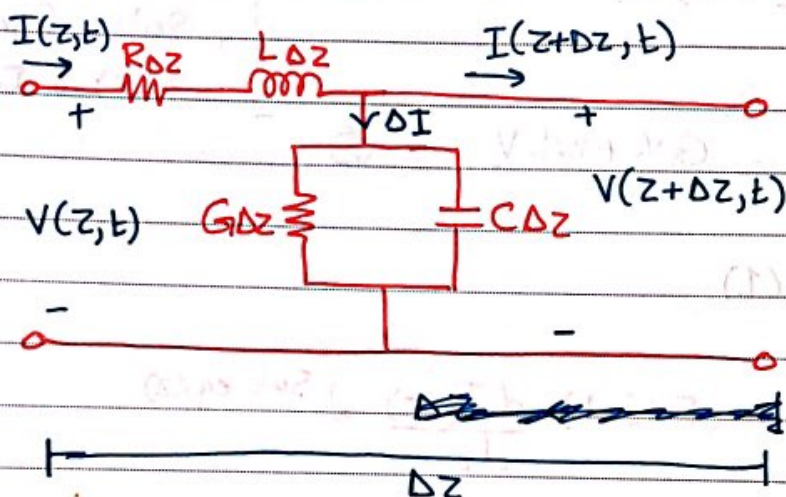 I(z,t) RΔz LΔz I(z+Δz, t)
+ ΔI +
V(z,t) GΔz CΔz V(z+Δz,t)
- -
Δz